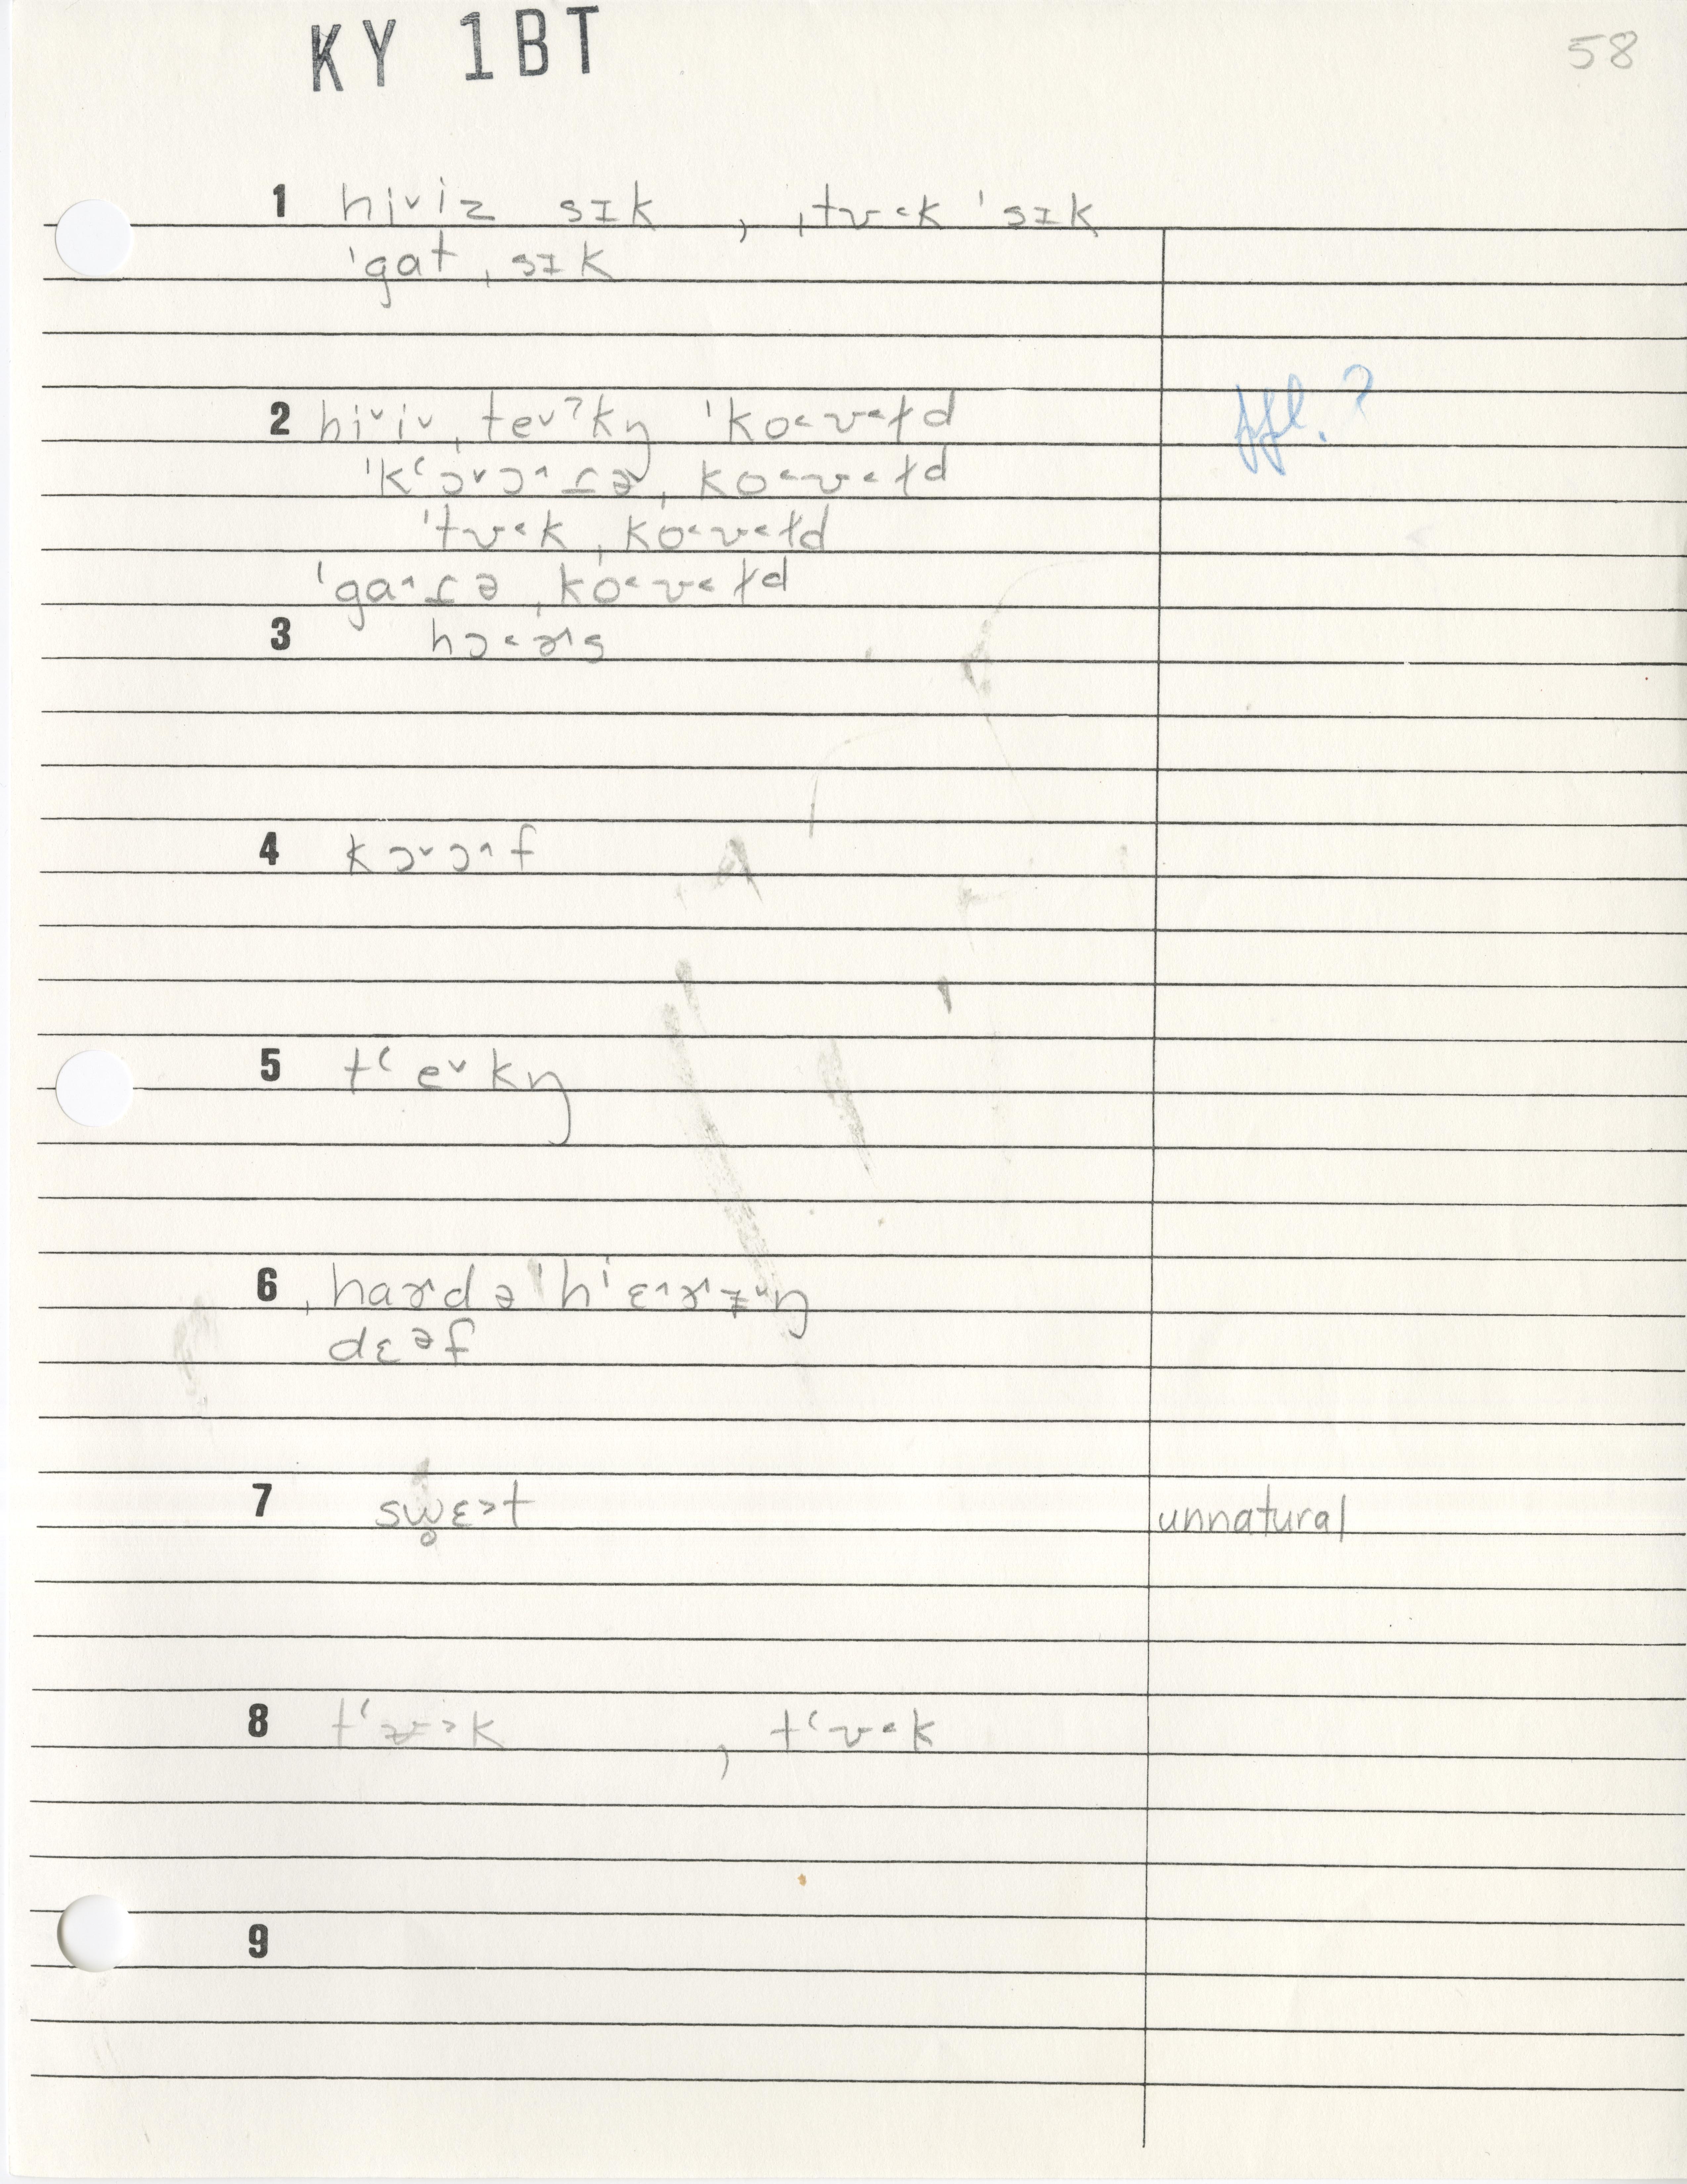 KY 1BT
58
1 hiᵛiz sɪk , ˌtʊ˂k ˈsɪk
ˈgat ˌsɪk
2 hiᵛiv ˌteᵛʔkŋ ˈko˂ʊ˂ɫd
ˈkʻɔᵛɔ^ɾə ˌko˂ʊ˂ɫd
ˈtʊ˂k ˌko˂ʊ˂ɫd
ˈga^ɾə ˌko˂ʊ˂ɫd
3 hɔ˂ɚ^s
4 kɔᵛɔ^f
5 tʻeᵛkŋ
6
dɛəf
7 sw̥ɛ˃t unnatural
8 , tʻʊ˂k
9